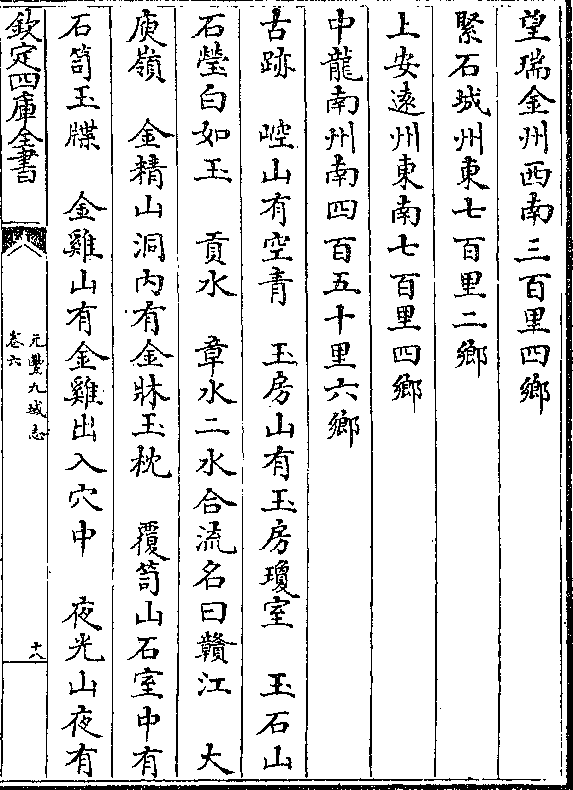 望瑞金州西南三百里四鄉
緊石城州東七百里二鄉
上安逺州東南七百里四鄉
中龍南州南四百五十里六鄉
古跡　崆山有空青　玉房山有玉房瓊室　玉石山
石瑩白如玉　貢水　章水二水合流名曰贛江　大
庾嶺　金精山洞内有金牀玉枕　覆笥山石室中有
石笥玉牒　金雞山有金雞出入穴中　夜光山夜有
欽定四庫全書
元豐九域志
卷六
十八